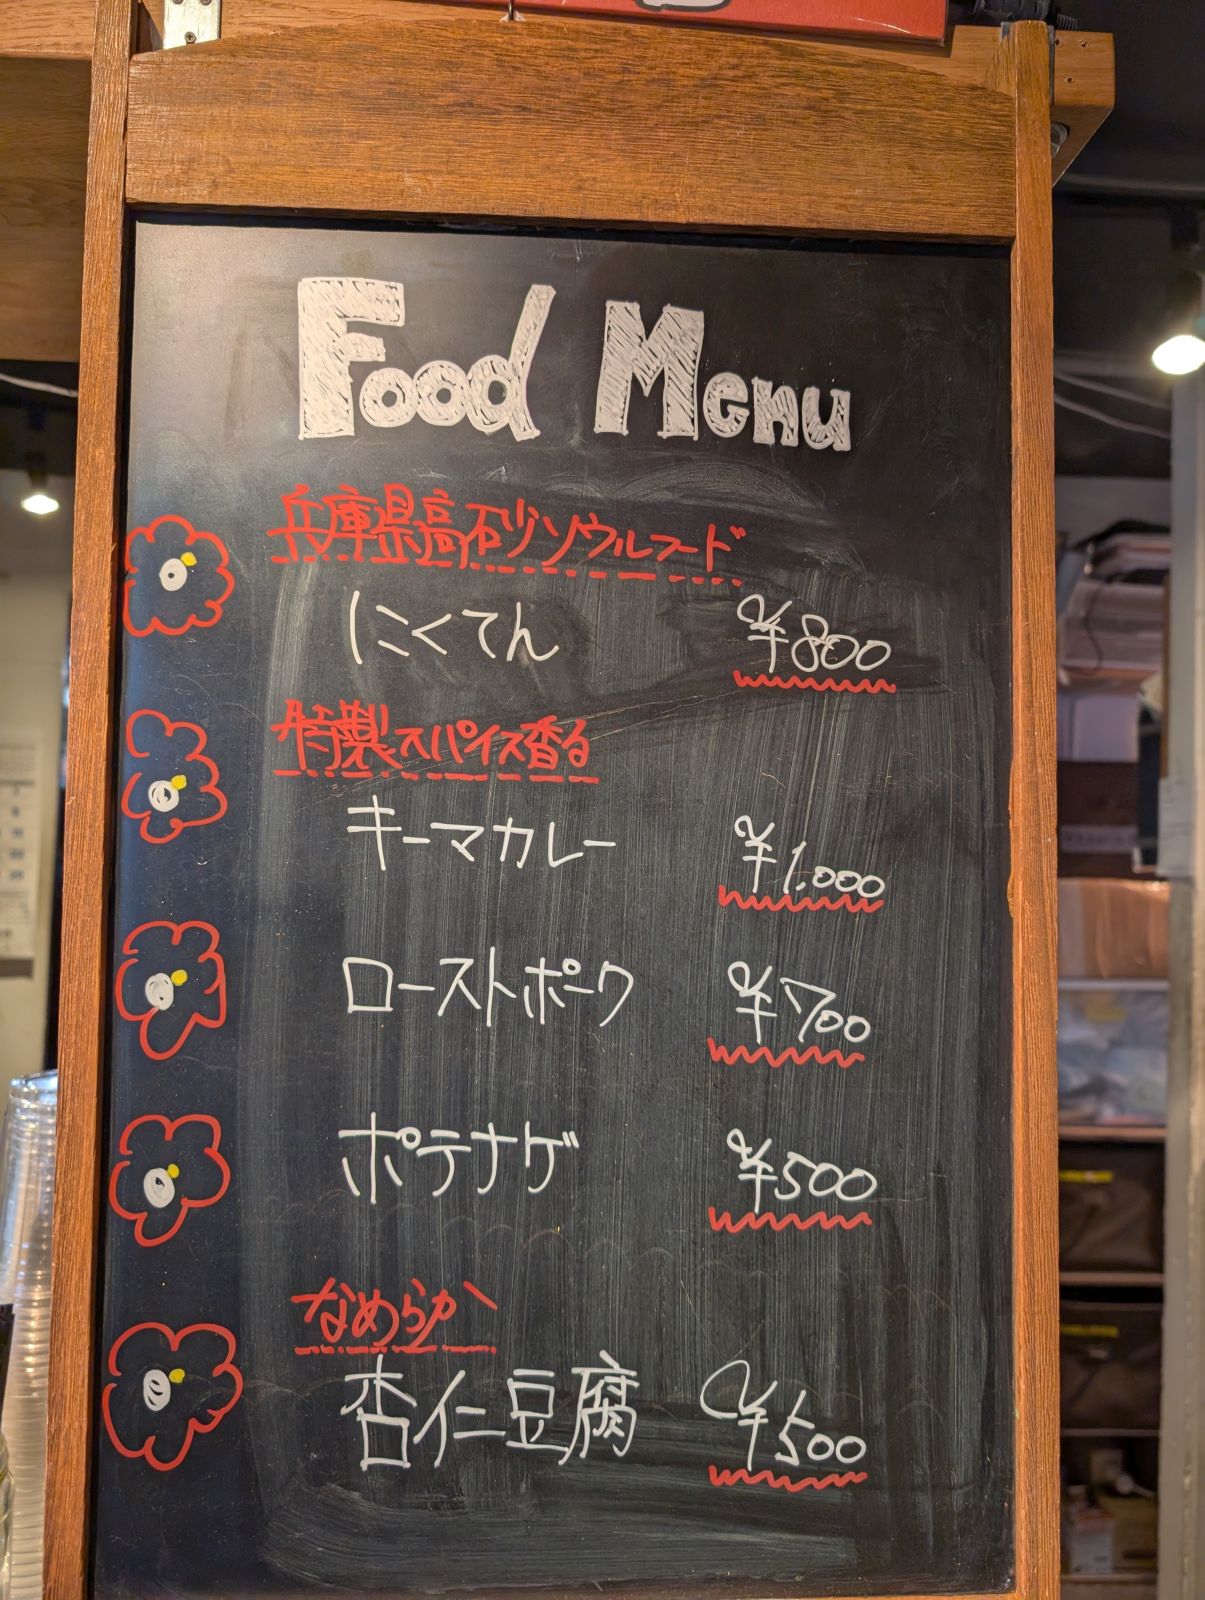 Food Menu
兵庫県高砂ソウルフード
にくてん ¥800
特製スパイス香る
キーマカレー ¥1,000
ローストポーク ¥700
ポテナゲ ¥500
なめらか
杏仁豆腐 ¥500